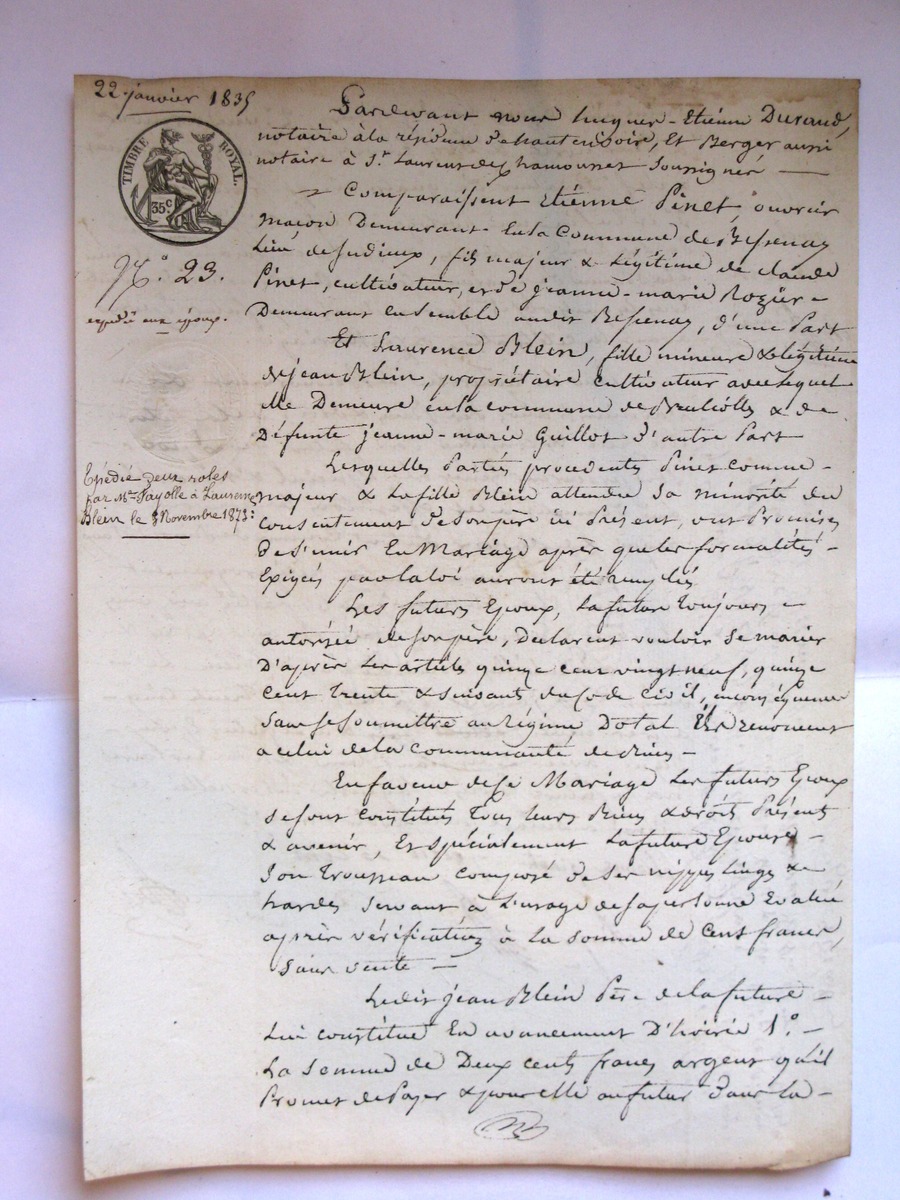 22 janvier 1835
TIMBRE ROYAL.
35c
N.° 23.
expédié aux époux.
Expédié deux roles
par Me Fayolle à Laurence
Blein le 3 Novembre 1873:
Pardevant nous hugues-Etiénne Durand,
notaire à la résidence de hauterivoire, Et Berger aussi
notaire à St. Laurent de chamousset soussignés —
Comparaissent Etiénne Pinet, ouvrier
maçon Demeurant En la Commune de Bessenay
Lieu de Sudieux, fils majeur & Légitime de claude
Pinet, cultivateur, et de jeanne-marie Rozier -
Demeurant ensemble audit Bessenay, d'une Part
Et Laurence Blein, fille mineure & légitime
de jean Blein, propriétaire cultivateur avec lequel
elle Demeure en la commune de & de
Défunte jeanne-marie Guillot d'autre Part
Lesquelles Parties procedentes Pinet comme -
majeur & La fille Blein attendu sa minorité du
consentement de son père ici Présent, ont Promis
de s'unir En Mariage après que les formalités -
Exigées par la loi auront été remplies
Les futurs Epoux, La future toujours -
autorisée de son père, Déclarent vouloir se marier
D'après Les articles quinze cent vingt neuf, quinze
cent trente & suivants du code civil, en conséquence
sans se soumettre au régime Dotal Ils renoncent
a celui de la communauté de biens -
En faveur de ce Mariage Les futurs Epoux
se sont constitués Tous leurs Biens & droits Présents
& avenir, Et spécialement La future Epouse -
son trousseau composé de ses nippes linges &
hardes servant à L'usage de sa personne Evalué
après vérification à la somme de cent francs,
sans vente —
Ledit jean Blein Père de la future -
Lui constitue En avancement D'hoirie 1.° -
La somme de Deux cents francs argent qu'il
Promet de Payer & pour elle au futur dans la -